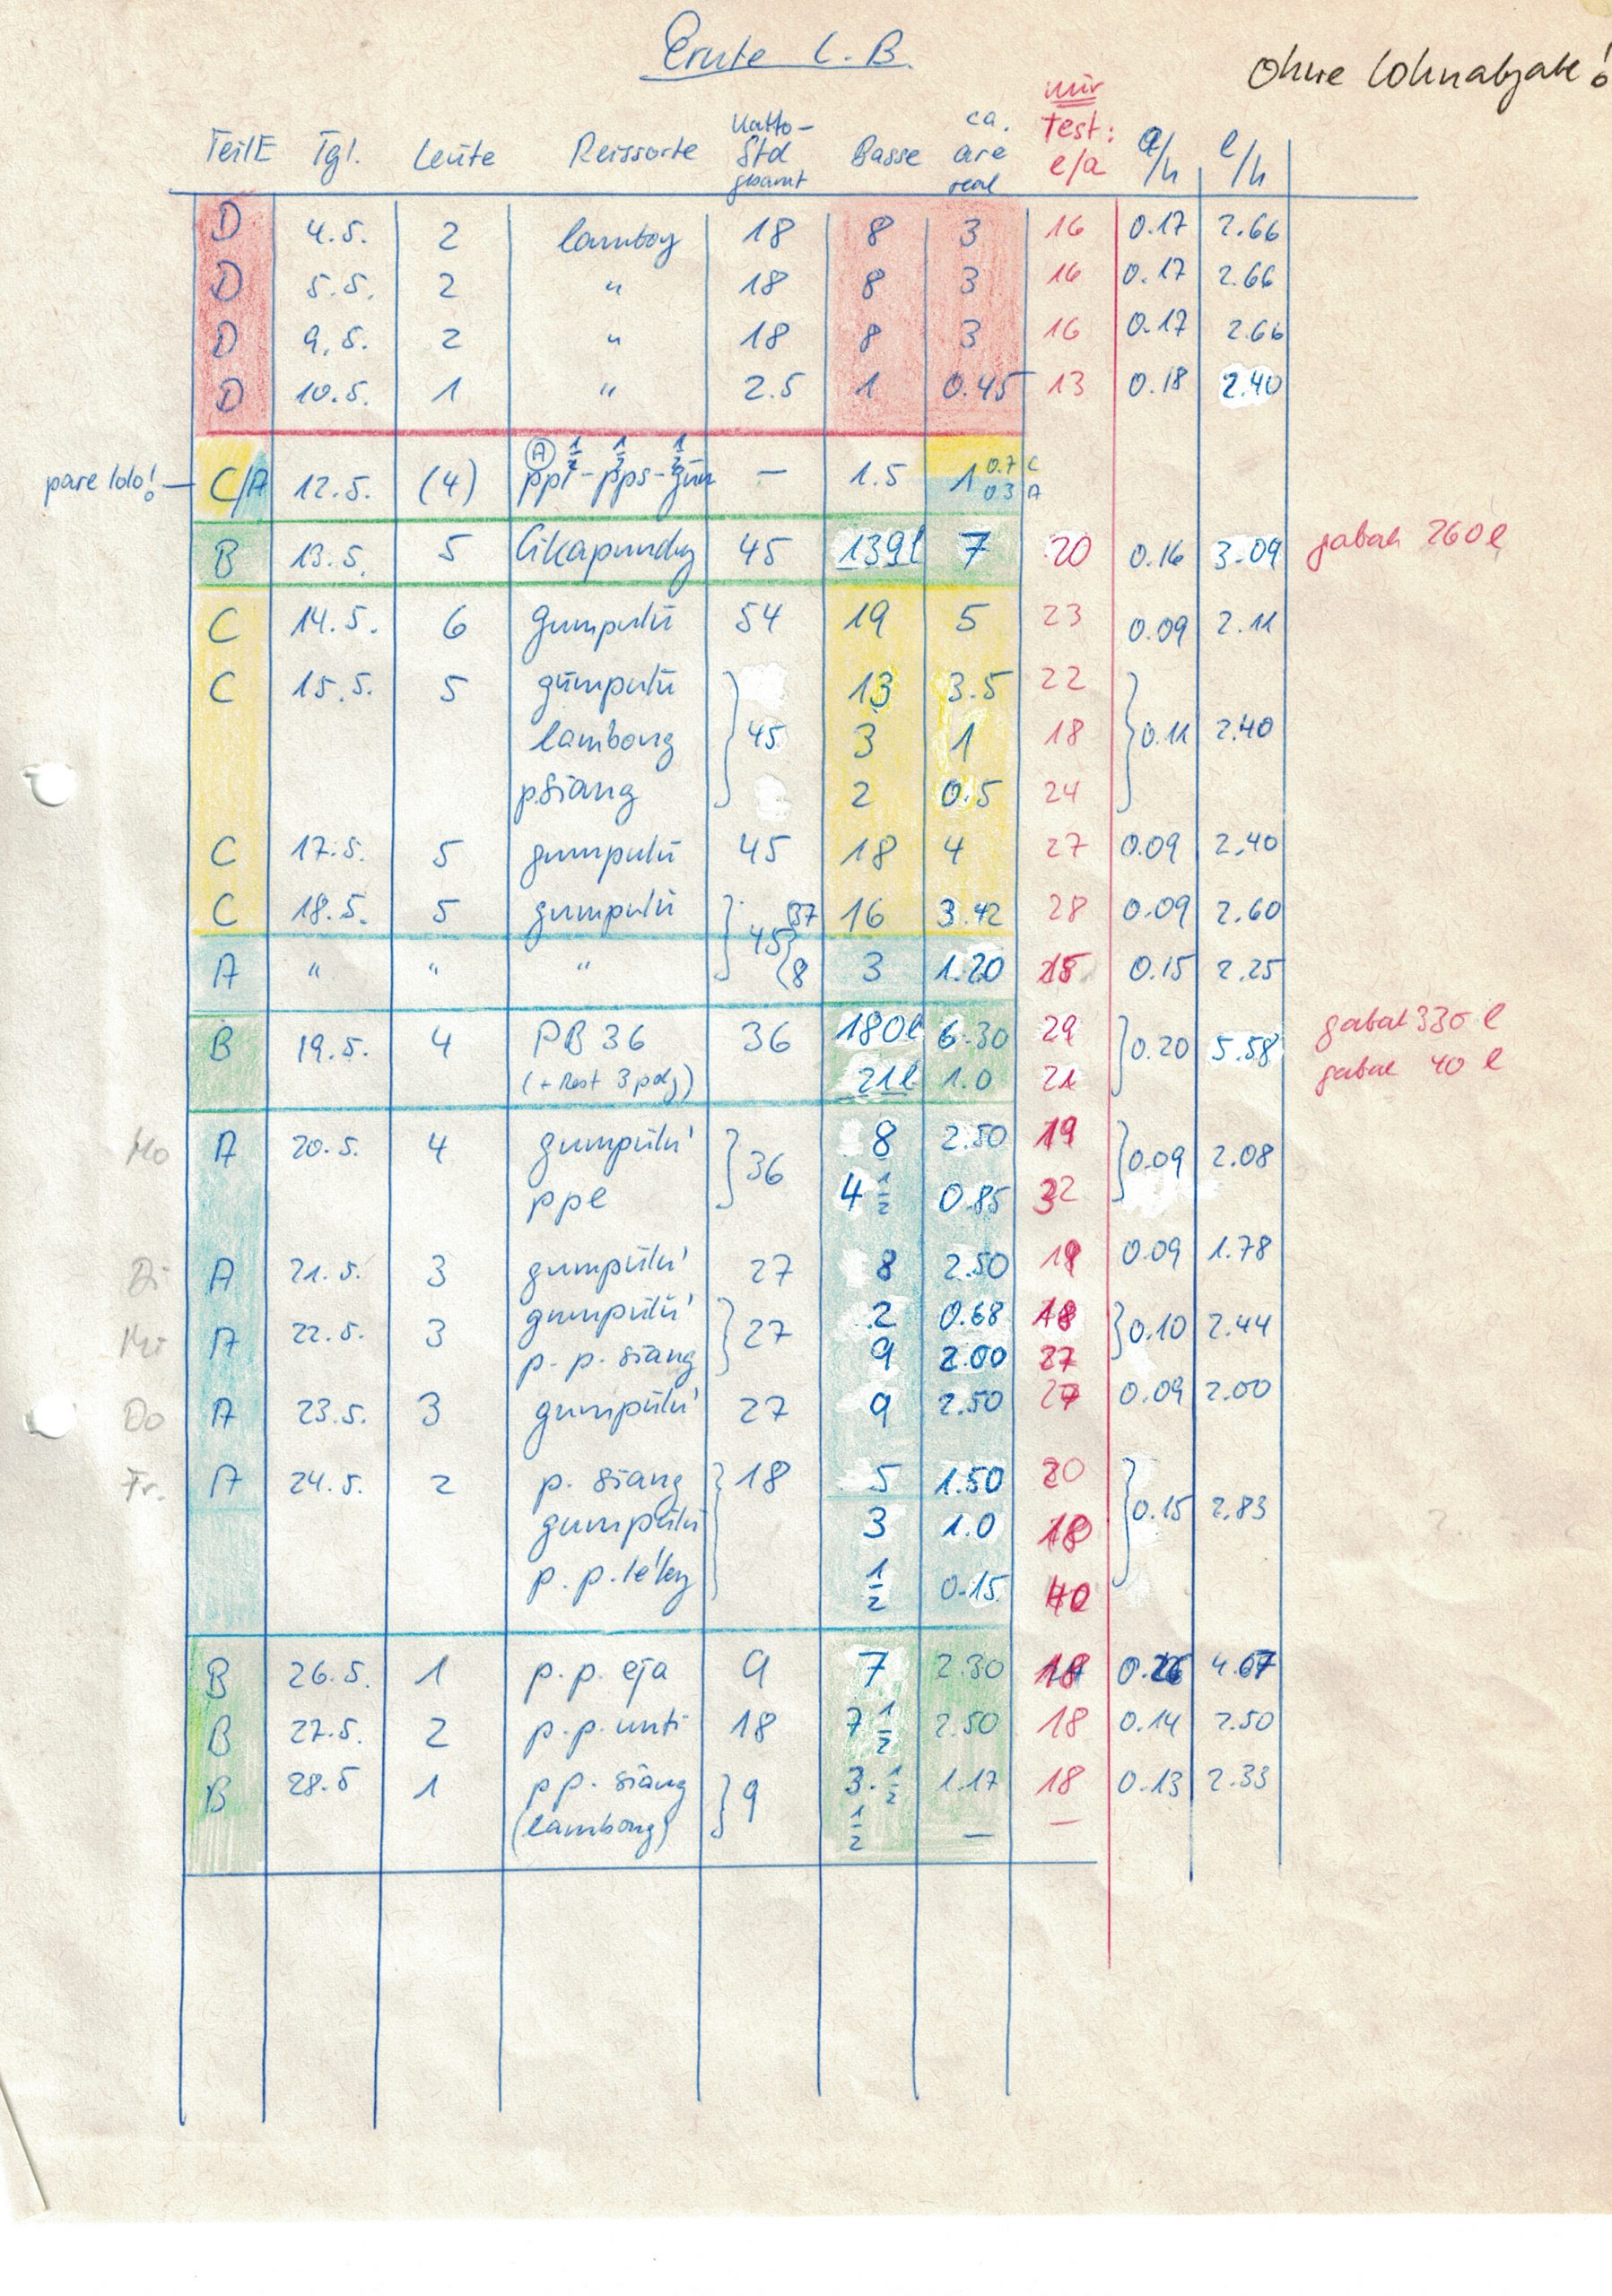 Ernte L.B.
Ohne Lohnabgabe!
TeilE Tgl. Leute Reissorte Netto-Std gesamt Basse ca. are real nur Test: l/a a/h l/h
D 4.5. 2 lambog 18 8 3 16 0.17 2.66
D 5.5. 2 " 18 8 3 16 0.17 2.66
D 9.5. 2 " 18 8 3 16 0.17 2.66
D 10.5. 1 " 2.5 1 0.45 13 0.18 2.40
pare lolo! C/A 12.5. (4) (A) ½ ½ ½ ppl-pps-gum — 1.5 1 0.7 C 0.3 A
B 13.5. 5 Cikapundug 45 139l 7 20 0.16 3.09 gabah 260 l
C 14.5. 6 gumpulū 54 19 5 23 0.09 2.11
C 15.5. 5 gumpulū 13 3.5 22
lambong } 45 3 1 18 } 0.11 2.40
psiang 2 0.5 24
C 17.5. 5 gumpulū 45 18 4 27 0.09 2.40
C 18.5. 5 gumpulū } 45 { 37 16 3.42 28 0.09 2.60
A " " " 8 3 1.20 15 0.15 2.25
B 19.5. 4 PB 36 36 180l 6.30 29 } 0.20 5.58 gabah 330 l
(+ Rest 3 pdg) 21l 1.0 21 gabah 40 l
Mo A 20.5. 4 gumpulu' } 36 8 2.50 19 } 0.09 2.08
ppl 4 ½ 0.85 32
Di A 21.5. 3 gumpulu' 27 8 2.50 19 0.09 1.78
Mi A 22.5. 3 gumpulu' } 27 2 0.68 18 } 0.10 2.44
p.p. siang 9 2.00 27
Do A 23.5. 3 gumpulu' 27 9 2.50 0.09 2.00
Fr. A 24.5. 2 p. siang } 18 5 1.50 20 } 0.15 2.83
gumpulu 3 1.0 18
p.p. le'leg ½ 0.15 40
B 26.5. 1 p.p. eja 9 7 2.30 18 0.26 4.67
B 27.5. 2 p.p. unti 18 7 ½ 2.50 18 0.14 2.50
B 28.5 1 pp. siang } 9 3.½ 1.17 18 0.13 2.33
(lambong) ½ — —